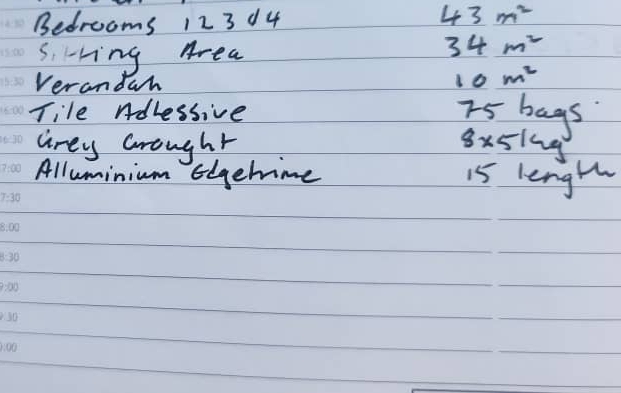 14:30 Bedrooms 1 2 3 & 4 43 m²
15:00 Sitting Area 34 m²
15:30 Verandah 10 m²
16:00 Tile Adhessive 75 bags
16:30 Grey Grought 8x5kg
17:00 Alluminium Edgetrime 15 length
7:30
8:00
8:30
9:00
9:30
0:00